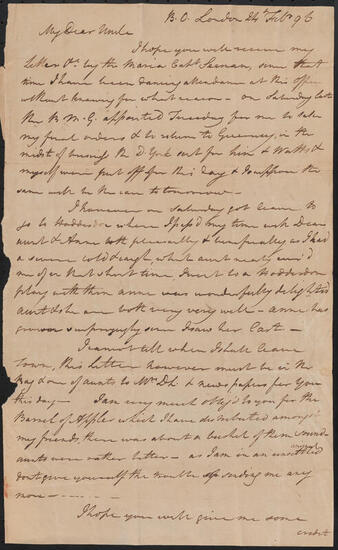 B.O. London 24th Feby 96
My Dear Uncle
I hope you will receive my
letter by the Maria Capt. since that
time I have been dancing attendance at this office
without knowing for what reason - on Saturday last
the appointed Tuesday for me to take
my final orders & to return to Guernsey, in the
midst of business the D. York sent for him & Watts &
myself were put off for this day & I suppose the
same will be the case to tomorrow -
I however on Saturday got leave to
go to Hoddesdon where I pass'd my time with Dear
aunt & Anne both pleasantly & as I had
a severe cold & cough, which aunt nearly cur'd
me of in that short time. I went to a Hoddesdon
play with them anne was wonderfully delighted
aunt & she are both very very well - anne has
grown surprisingly since I saw her Last -
I cannot tell when I shall leave
Town, this letter however must be in the
Bag & one of aunts to Mrs & news papers for you
this day - I am very much oblig'd to you for the
Barrel of Apples which I have distributed amongst
my friends, there was about a bushel of them sound
aunts were rather better - as I am in an unsettled
dont give yourself the trouble of sending me any
more -
I hope you will give me some
credit